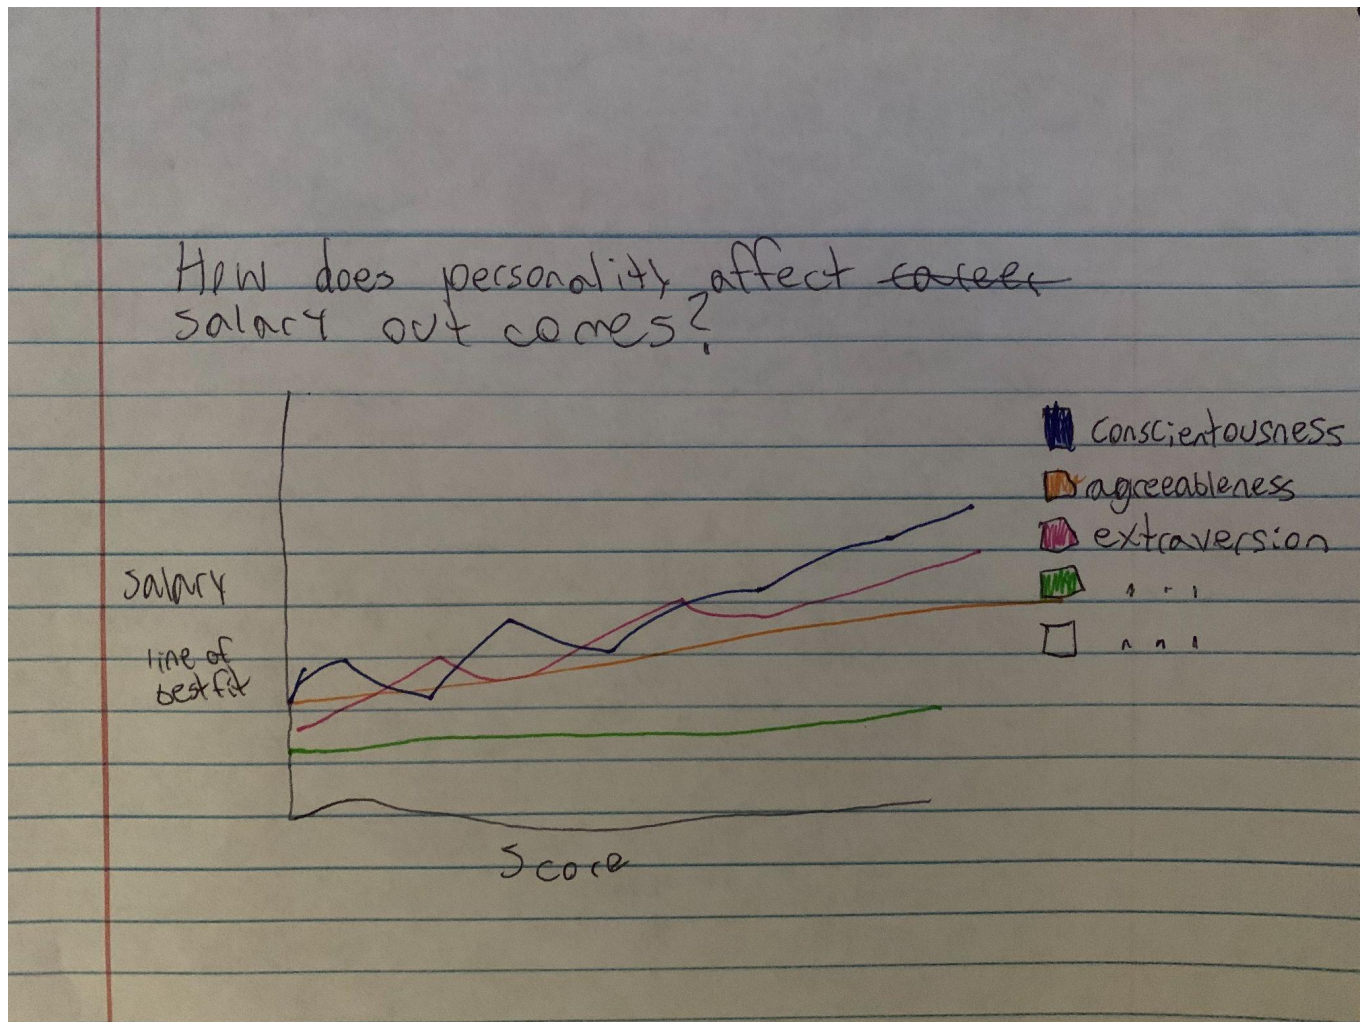 How does personality affect career
salary out comes?
conscientousness
agreeableness
extraversion
. . .
. . .
salary
line of
best fit
Score